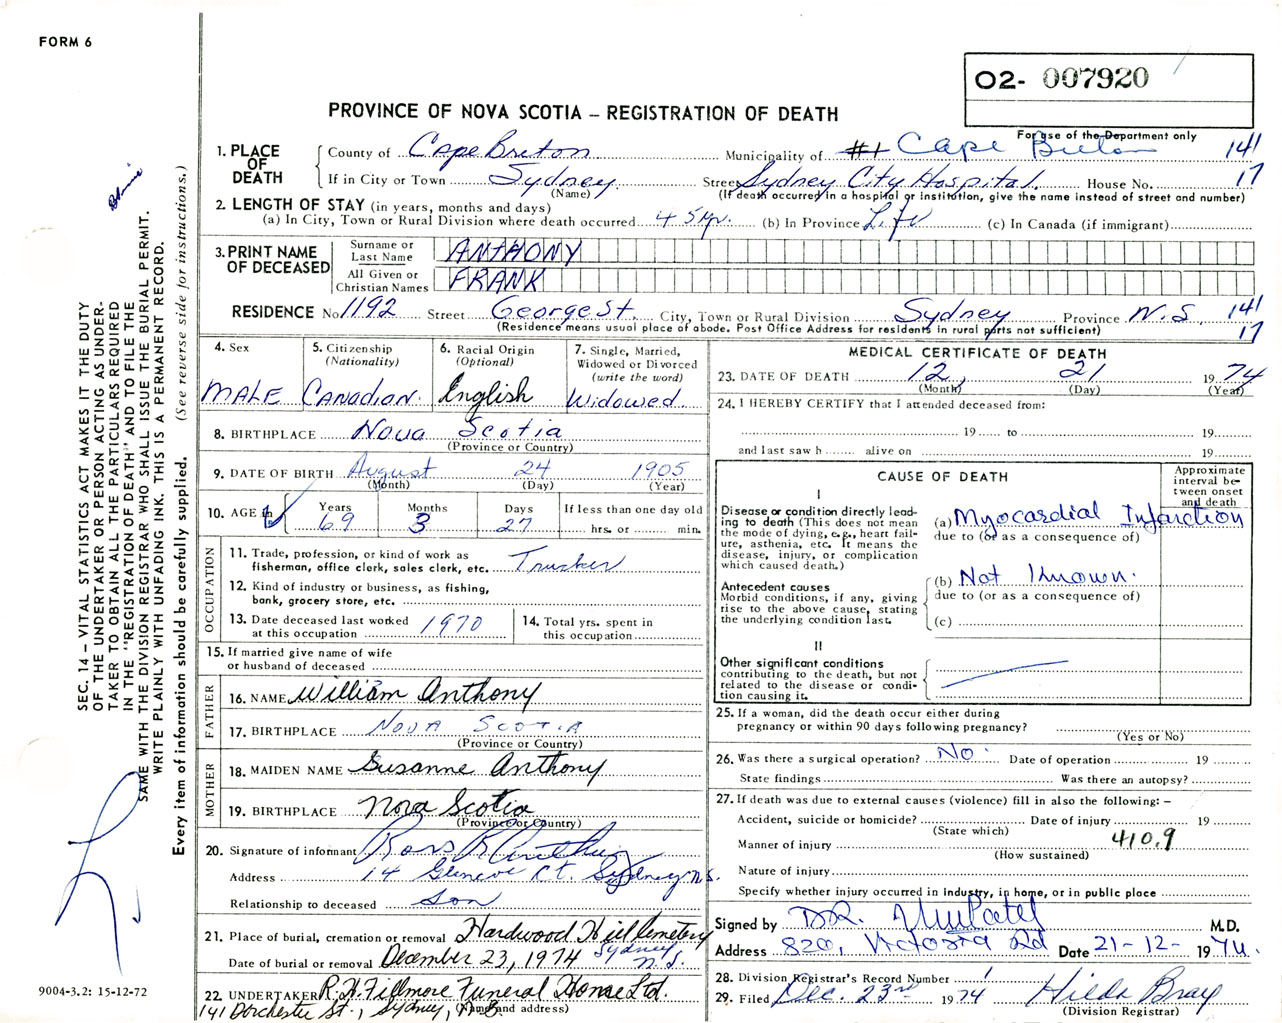 FORM 6
02- 007920
PROVINCE OF NOVA SCOTIA – REGISTRATION OF DEATH
For use of the Department only
1. PLACE OF DEATH
County of Cape Breton Municipality of #1 Cape Breton 141
If in City or Town Sydney Street Sydney City Hospital House No. 17
(Name) (If death occurred in a hospital or institution, give the name instead of street and number)
2. LENGTH OF STAY (in years, months and days)
(a) In City, Town or Rural Division where death occurred 45 yr. (b) In Province Life (c) In Canada (if immigrant)
3. PRINT NAME OF DECEASED
Surname or Last Name ANTHONY
All Given or Christian Names FRANK
RESIDENCE No 1192 Street George St. City, Town or Rural Division Sydney Province N.S. 141
(Residence means usual place of abode. Post Office Address for residents in rural parts not sufficient) 17
4. Sex
MALE
5. Citizenship
(Nationality)
Canadian
6. Racial Origin
(Optional)
English
7. Single, Married,
Widowed or Divorced
(write the word)
Widowed
8. BIRTHPLACE Nova Scotia
(Province or Country)
9. DATE OF BIRTH August 24 1905
(Month) (Day) (Year)
10. AGE
Years Months Days If less than one day old
69 3 27 hrs. or min.
OCCUPATION
11. Trade, profession, or kind of work as
fisherman, office clerk, sales clerk, etc. Trucker
12. Kind of industry or business, as fishing,
bank, grocery store, etc.
13. Date deceased last worked
at this occupation 1970
14. Total yrs. spent in
this occupation
15. If married give name of wife
or husband of deceased
FATHER
16. NAME William Anthony
17. BIRTHPLACE Nova Scotia
(Province or Country)
MOTHER
18. MAIDEN NAME Susanne Anthony
19. BIRTHPLACE Nova Scotia
(Province or Country)
20. Signature of informant Ross R Anthony
Address 14 Ct. Sydney N.S.
Relationship to deceased Son
21. Place of burial, cremation or removal Hardwood Hill Cemetery
Sydney N.S.
Date of burial or removal December 23, 1974
22. UNDERTAKER R.H. Fillmore Funeral Home Ltd.
141 Dorchester St., Sydney, N.S. (Name and address)
MEDICAL CERTIFICATE OF DEATH
23. DATE OF DEATH 12 21 1974
(Month) (Day) (Year)
24. I HEREBY CERTIFY that I attended deceased from:
19 to 19
and last saw h alive on 19
CAUSE OF DEATH
Approximate
interval be-
tween onset
and death
I
Disease or condition directly lead-
ing to death (This does not mean
the mode of dying, e.g., heart fail-
ure, asthenia, etc. It means the
disease, injury, or complication
which caused death.)
(a) Myocardial Infarction
due to (or as a consequence of)
Antecedent causes
Morbid conditions, if any, giving
rise to the above cause, stating
the underlying condition last.
(b) Not Known.
due to (or as a consequence of)
(c)
II
Other significant conditions
contributing to the death, but not
related to the disease or condi-
tion causing it.
25. If a woman, did the death occur either during
pregnancy or within 90 days following pregnancy?
(Yes or No)
26. Was there a surgical operation? No. Date of operation 19
State findings Was there an autopsy?
27. If death was due to external causes (violence) fill in also the following: –
Accident, suicide or homicide? Date of injury 19
(State which)
Manner of injury 410.9
(How sustained)
Nature of injury
Specify whether injury occurred in industry, in home, or in public place
Signed by DR. M.D.
Address 820, Victoria Rd Date 21-12- 1974.
28. Division Registrar's Record Number 1
29. Filed Dec. 23rd 1974 Hilda Bray
(Division Registrar)
SEC. 14 – VITAL STATISTICS ACT MAKES IT THE DUTY
OF THE UNDERTAKER OR PERSON ACTING AS UNDER-
TAKER TO OBTAIN ALL THE PARTICULARS REQUIRED
IN THE "REGISTRATION OF DEATH" AND TO FILE THE
SAME WITH THE DIVISION REGISTRAR WHO SHALL ISSUE THE BURIAL PERMIT.
WRITE PLAINLY WITH UNFADING INK. THIS IS A PERMANENT RECORD.
Every item of information should be carefully supplied. (See reverse side for instructions.)
9004-3.2: 15-12-72